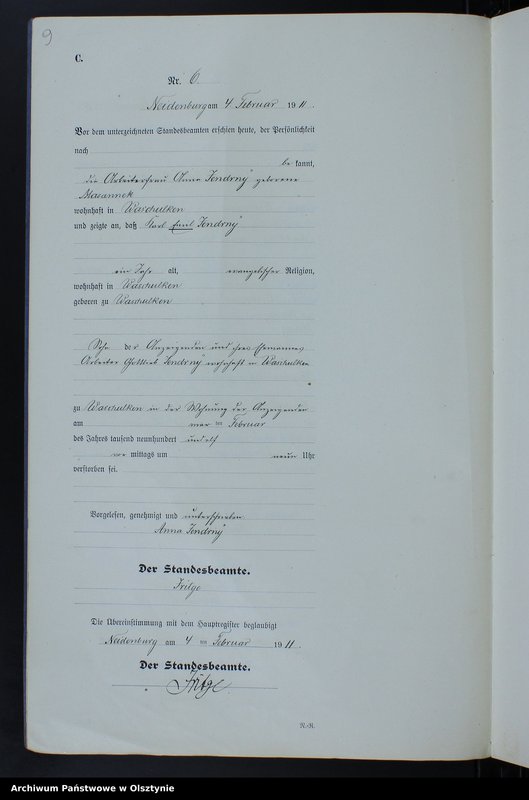 9
C.
Nr. 6.
Neidenburg am 4. Februar 1911.
Vor dem unterzeichneten Standesbeamten erschien heute, der Persönlichkeit
nach
be kannt,
die Arbeiterfrau Anna Jendrny geborene
wohnhaft in Waschulken
und zeigte an, daß Karl Emil Jendrny
ein Jahr alt, evangelischer Religion,
wohnhaft in Waschulken
geboren zu Waschulken
Sohn der Anzeigenden und ihres Ehemannes
Arbeiter Gottlieb Jendrny wohnhaft in Waschulken
zu Waschulken in der Wohnung der Anzeigenden
am ten Februar
des Jahres tausend neunhundert und elf
vor mittags um neun Uhr
verstorben sei.
Vorgelesen, genehmigt und unterschrieben
Anna Jendrny
Der Standesbeamte.
Die Übereinstimmung mit dem Hauptregister beglaubigt
Neidenburg am 4 ten Februar 1911.
Der Standesbeamte.
R.-R.
Archiwum Państwowe w Olsztynie